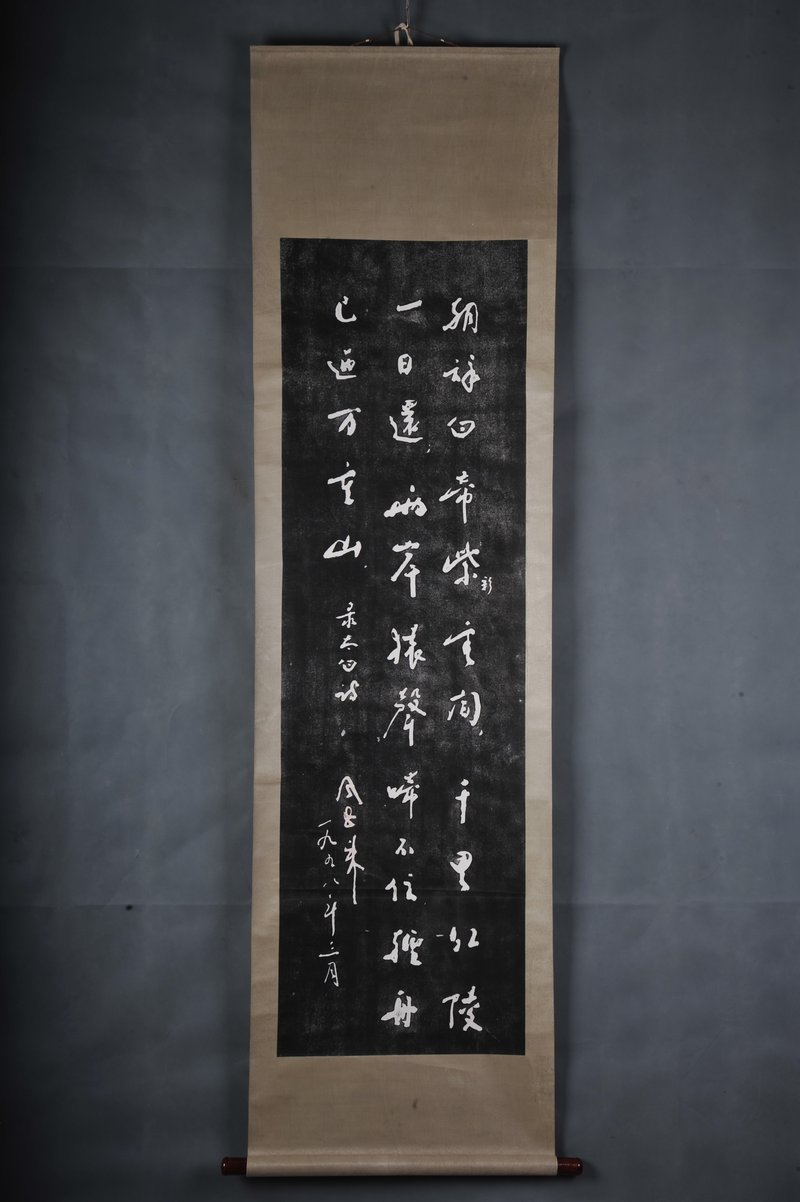 朝辞白帝柴彩雲间，千里江陵
一日還，两岸猿聲啼不住轻舟
已過万重山。录太白诗。周恩来
一九五八年三月